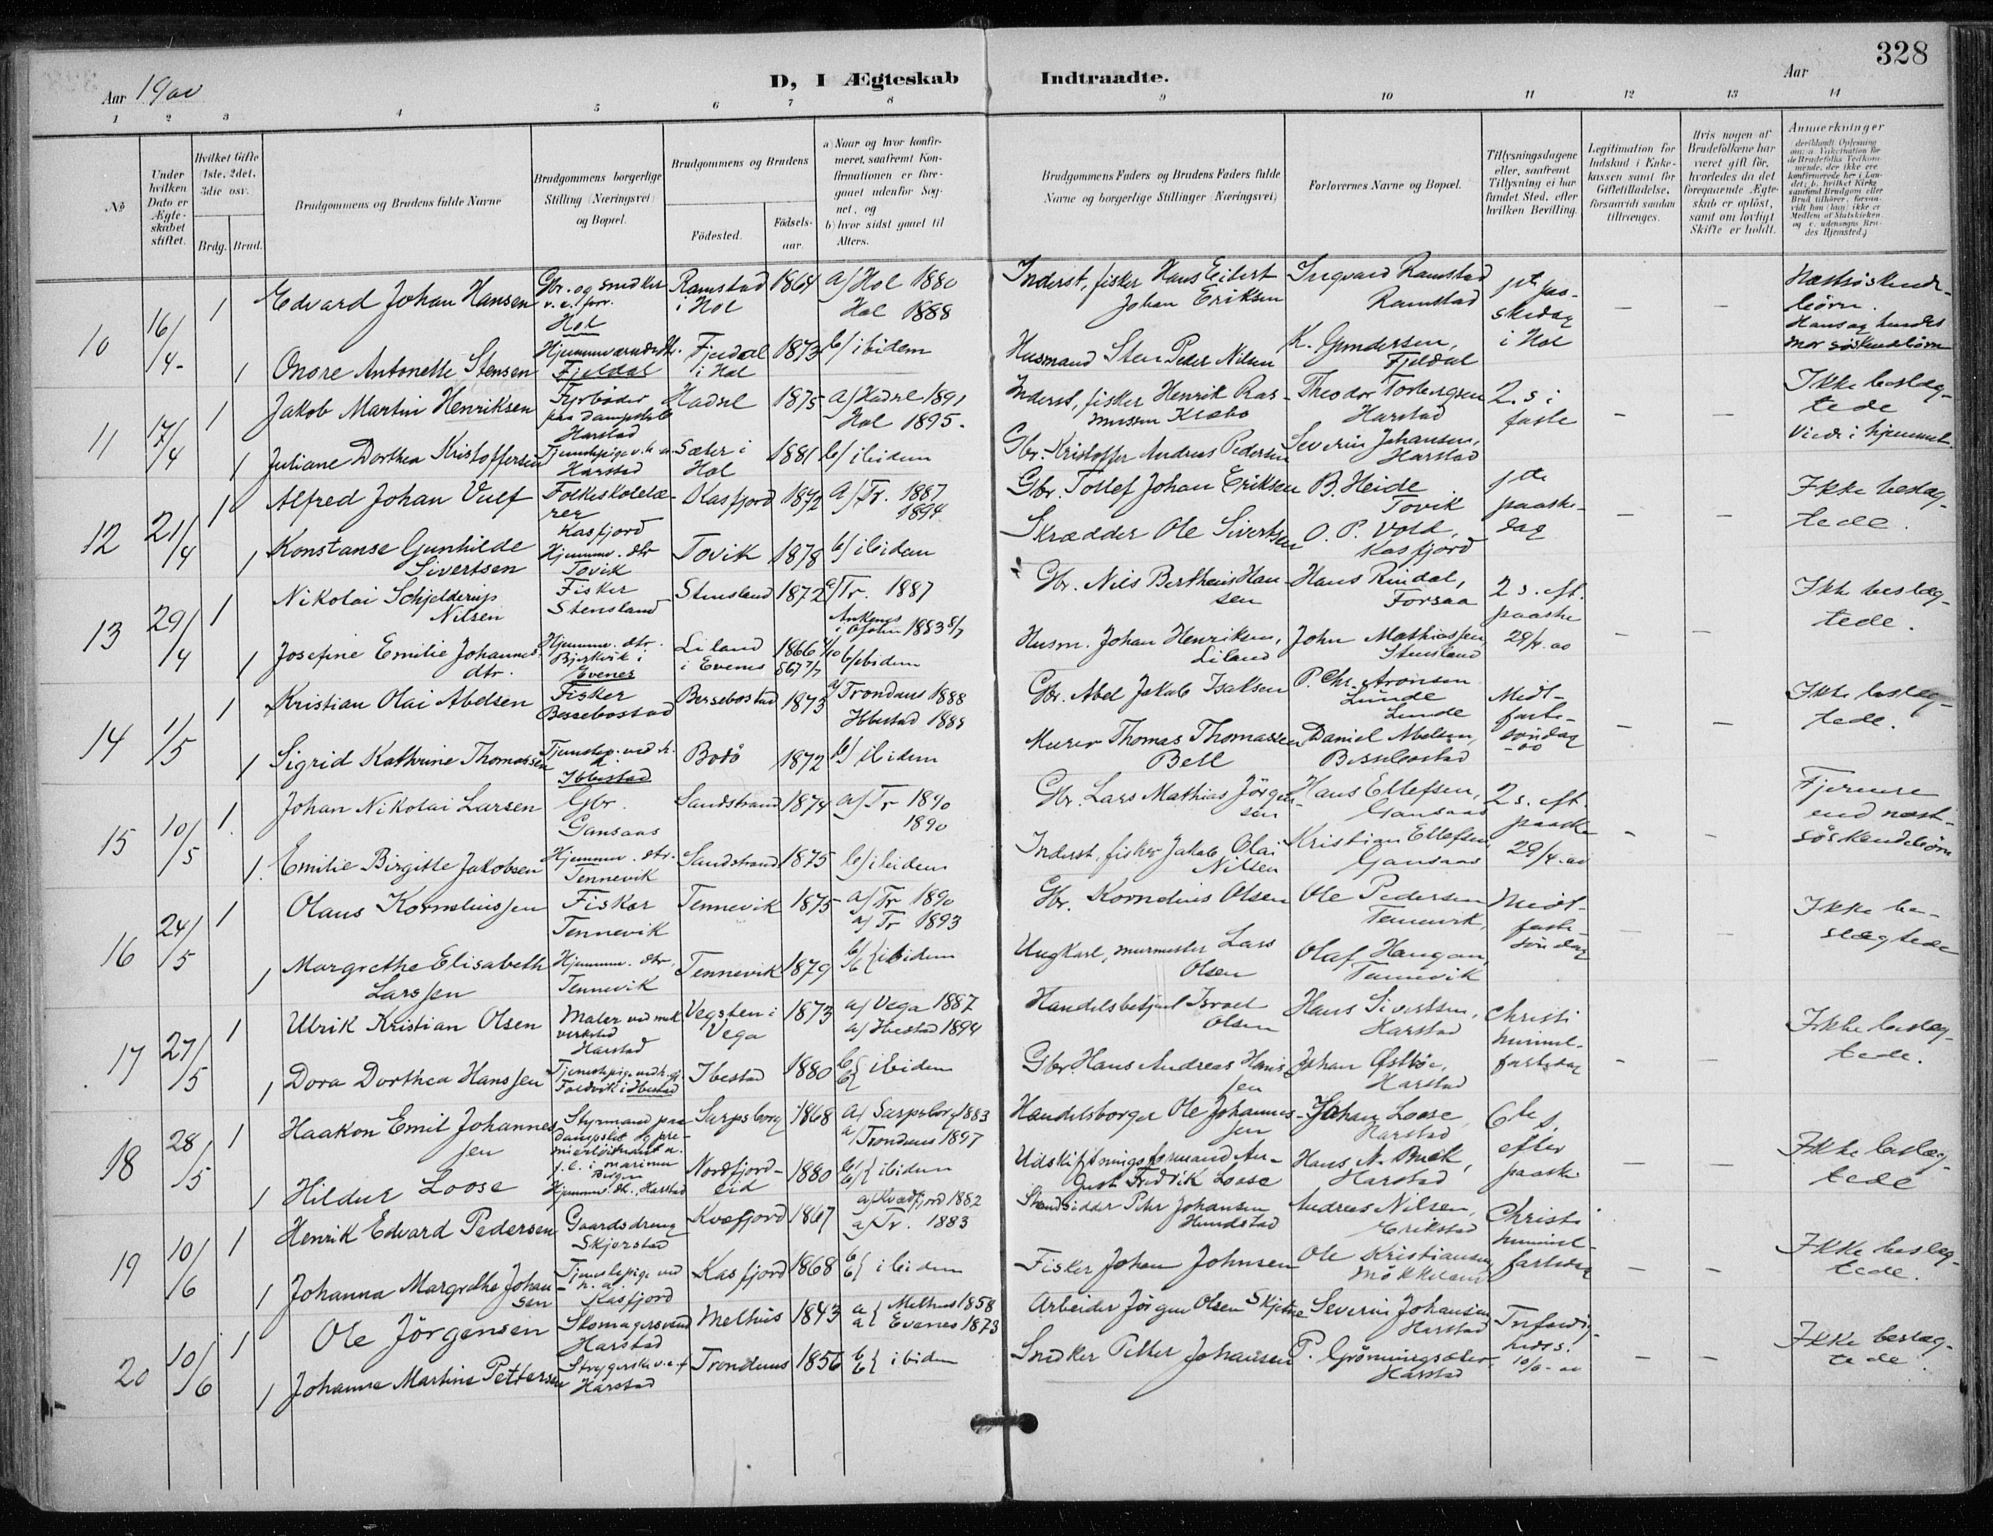 328
Aar 1900
D, I Ægteskab Indtraadte.
Aar
1 2 3 4 5 6 7 8 9 10 11 12 13 14
No
Under hvilken Dato er Ægteskabet stiftet.
Hvilket Gifte 1ste, 2det, 3die osv.
Brdg. Brud.
Brudgommens og Brudens fulde Navne
Brudgommens borgerlige Stilling (Næringsvei) og Bopæl.
Brudgommens og Brudens
Fødested.
Fødselsaar.
a) Naar og hvor konfirmeret, saafremt Konfirmationen er foregaaet udenfor Sognet, og
b) hvor sidst gaaet til Alters.
Brudgommens Faders og Brudens Faders fulde Navne og borgerlige Stillinger (Næringsvei)
Forlovernes Navne og Bopæl.
Tillysningsdagene eller, saafremt Tillysning ei har fundet Sted, efter hvilken Bevilling.
Legitimation for Indskud i Enkekassen samt for Giftetilladelse, forsaavidt saadan tiltrænges.
Hvis nogen af Brudefolkene har været gift før, hvorledes da det foregaaende Ægteskab er opløst, samt om lovligt Skifte er holdt.
Anmerkninger
10 16/4 1 Edvard Johan Hansen Gbr. og snedker Hol Ramstad i Hol 1864 a/ Hol 1880 Hol 1888 Inderst, fisker Hans Eibert Johan Eriksen Ingvard Ramstad Ramstad 1ste paaskedag i Hol – – Næstsöskendebörn. Hans og hendes mor söskendebörn
1 Onore Antonette Stensen Fjeldal Fjeldal i Hol 1873 b/ ibidem Husmand Sten Peder Nilsen K. Gundersen, Fjeldal
11 17/4 1 Jakob Martin Henriksen Fyrböder paa Dampskib Harstad Hadsel 1875 a/ Hadsel 1891 Hol 1895. Inderst, fisker Henrik Rasmussen Klæbo Theodor Torbergsen Harstad 2. s. i faste – – Ikke beslægtede Viede i hjemmet.
1 Juliane Dorthea Kristoffersen Tjenestepige Harstad Sæter i Hol 1881 b/ ibidem Gbr. Kristoffer Andreas Pedersen Severin Johansen, Harstad
12 21/4 1 Alfred Johan Vulf Folkeskolelærer Kasfjord Kasfjord 1872 a/ Tr. 1887 1894 Gbr. Tollef Johan Eriksen B. Heide Tovik 1ste paaskedag – – Ikke beslægtede.
1 Konstanse Gunhilde Sivertsen Hjemmev. dtr Tovik Tovik 1878 b/ ibidem Skrædder Ole Sivertsen O. P. Vold, Kasfjord
13 29/4 1 Nikolai Schjelderup Nilsen Fisker Stensland Stensland 1872 a/ Tr. 1887 Gbr. Nils Bertheus Hansen Hans Rindal, Forsaa 2 s. eft. paaske 29/4 00 – – Ikke beslægtede.
1 Josefine Emilie Johannesdtr. Hjemmev. dtr. Bjerkvik i Evenes Liland i Evenes 1866 b/ ibidem Husm. Johan Henriksen, Liland John Mathiassen, Stensland
14 1/5 1 Kristian Olai Abelsen Fisker Bessebostad Bessebostad 1873 a/ Trondenes 1888 Ibbestad 1888 Gbr. Abel Jakob Isaksen P. Chr. Aronsen Lunde Lunde Midtfastesöndag 00 – – Ikke beslægtede.
1 Sigrid Kathrine Thomassen Tjenestep. ved h. a. Ibbestad Bodö 1872 b/ ibidem Murer Thomas Thomassen Bell Daniel Abelsen, Bessebostad
15 10/5 1. Johan Nikolai Larsen Gbr. Gansaas Sandstrand 1874 a/ Tr 1890 1890 Gbr. Lars Mathias Jörgensen Hans Ellefsen, Gansaas 2 s. eft. paaske 29/4. 00 – – Fjernere end næstsöskendebörn
1. Emilie Birgitte Jakobsen Hjemmev. dtr. Tennevik Sandstrand 1875 b/ ibidem Inderst, fisker Jakob Olai Nilsen Kristian Ellefsen Gansaas
16 24/5 1 Olaus Korneliussen Fisker Tennevik Tennevik 1875 a/ Tr 1890 a/ Tr 1893 Gbr. Kornelius Olsen Ole Pedersen Tennevik, Midtfastesöndag – – Ikke beslægtede
1 Margrethe Elisabeth Larssen Hjemmev. dtr, Tennevik Tennevik 1879 b/ ibidem Ungkarl, murmester Lars Olsen Olaf Haugan, Tennevik
17 27/5 1 Ulrik Kristian Olsen Maler ved mek verksted Harstad Vegsten i Vega 1873 a/ Vega 1887 a/ Ibestad 1894 Handelsbetjent Israel Olsen Hans Sivertsen, Harstad Christi himmelfartsdag – – Ikke beslægtede.
1 Dora Dorthea Hanssen Ibestad Ibestad 1880 b/ ibidem Gbr Hans Andreas Hanssen Johan Østbö, Harstad
18 28/5 1 Haakon Emil Johannessen Styrmand paa dampskib og premierlöitnant Bergen Sarpsborg 1868 a/ Sarpsborg 1883 a/ Trondenes 1897 Handelsborger Ole Johannessen Johan Loose, Harstad 6te s. efter paaske – – Ikke beslægtede
1 Hildur Loose Hjemmev. dtr., Harstad Nordfjordeid 1880 b/ ibidem Udskiftningsformand August Fredrik Loose Hans N. Buck, Harstad
19 10/6 1 Henrik Edvard Pedersen Gaardsdreng Skjerstad Kvæfjord 1867 a/ Kvædfjord 1882 a/ Tr. 1883 Strandsidder Peter Johansen Hundstad Andreas Nilsen, Erikstad Christi himmelfartsdag – – Ikke beslægtede.
1 Johanna Margrethe Johansen Tjenestepige ved h. a. Kasfjord Kasfjord 1868 b/ ibidem Fisker Johan Johnsen Ole Kristiansen Mökkeland
20 10/6 1 Ole Jörgensen Skomagersvend Harstad Melhus 1843 a/ Melhus 1858 a/ Evenes 1873 Arbeider Jörgen Olsen Skjetne Severin Johansen Harstad Trefoldighedss. 10/6. 00 – – Ikke beslægtede.
1 Johanne Martine Pettersen Strygerske Harstad Trondenes 1856 b/ ibidem Snedker Petter Johansen P. Grönningsæter, Harstad